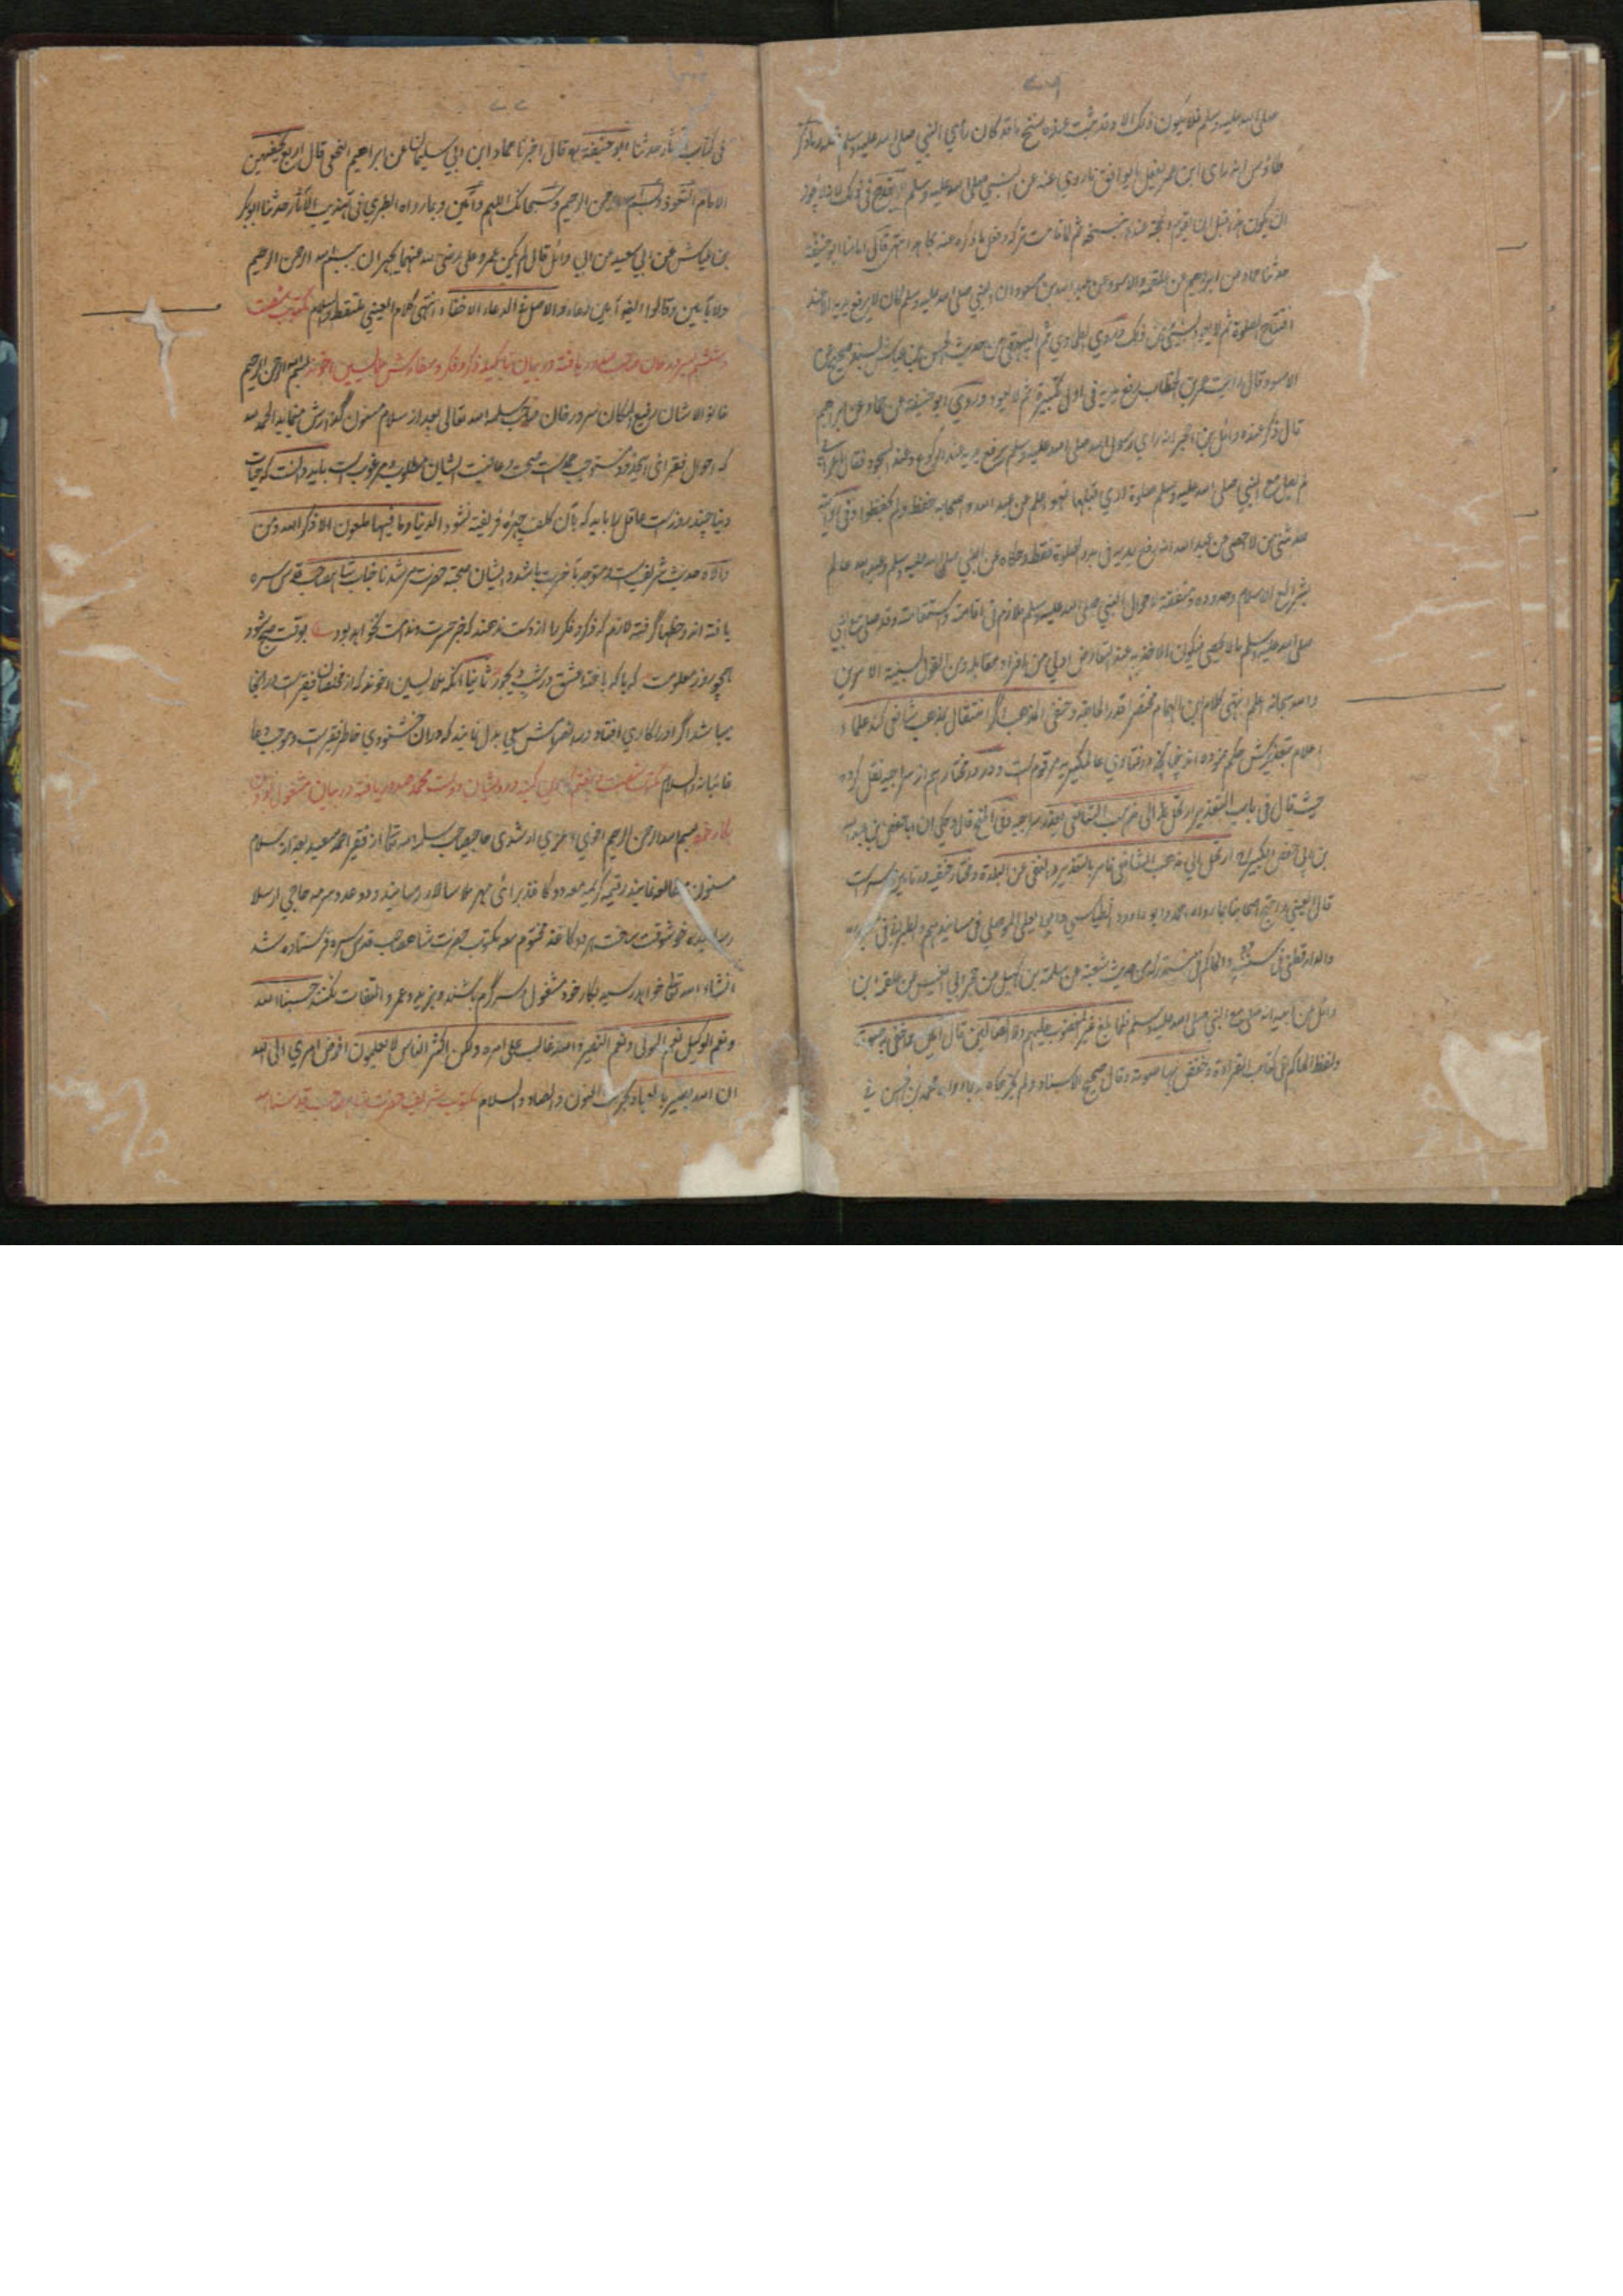 ٧٦
صلی الله علیه وسلم فلا یکون ذلک الا وقد ثبت عنده نسخ ما قد کان رأی النبی صلی الله علیه وسلم
طاؤس انه رای ابن عمر یفعل ما یوافق ما روی عنه عن النبی صلی الله علیه وسلم
ان یکون هذا قبل ان یقوم الحجة عنده بنسخه ثم لما قامت ترکه وفعل ما ذکره عنه مجاهد انتهی قال امامنا ابو حنیفة
حدثنا حماد عن ابراهیم عن علقمة والاسود عن عبد الله بن مسعود ان النبی صلی الله علیه وسلم کان لا یرفع یدیه الا عند
افتتاح الصلوة ثم لا یعود لشیء من ذلک وروی الطحاوی ثم البیهقی من حدیث الحسن بن عیاش بسند صحیح عن
الاسود قال رأیت عمر بن الخطاب رفع یدیه فی اول تکبیرة ثم لا یعود وروی ابو حنیفة عن حماد عن ابراهیم
قال ذکر عنده وائل بن حجر انه رای رسول الله صلی الله علیه وسلم یرفع یدیه عند الرکوع وعند السجود فقال اعرابی
لم یصل مع النبی صلی الله علیه وسلم صلوة اری قبلها فهو اعلم من عبد الله واصحابه حفظ ولم یحفظوا وفی روایة
حدثنی من لا احصی عن عبد الله انه رفع یدیه فی بدء الصلوة فقط وحکاه عن النبی صلی الله علیه وسلم وعبد الله عالم
بشرائع الاسلام وحدوده متفقد لاحوال النبی صلی الله علیه وسلم ملازم فی اقامته واستقامته وقد صلی مع النبی
صلی الله علیه وسلم ما لا یحصی فیکون الاخذ به عند التعارض اولی من افراد مقابله ومن القول بسنیة الامرین
والله سبحانه اعلم انتهی کلام ابن الهمام مختصرا قدر الحاجة وحنفی المذهب اگر انتقال بمذهب شافعی کند علماء
اعلام بتعزیرش حکم نموده اند چنانچه در فتاوی عالمگیریه مرقوم است و در در مختار هم از سراجیه نقل کرده
حیث قال فی باب التعزیر ارتحل الی مذهب الشافعی یعزر سراجیه وفی المنح قال وحکی ان ابا حفص بن عبد الله
بن ابی حفص الکبیر ارتحل الی مذهب الشافعی فامر بالتعزیر والنفی عن البلدة ومختار حنفیه در تامین سر است
قال العینی احتج اصحابنا بما رواه احمد وابو داود الطیالسی وابو یعلی الموصلی فی مسانیدهم والطبرانی فی معجمه
والدارقطنی فی سننه والحاکم فی مستدرکه من حدیث شعبة عن سلمة بن کهیل عن حجر ابی العنبس عن علقمة بن
وائل عن ابیه انه صلی مع النبی صلی الله علیه وسلم فلما بلغ غیر المغضوب علیهم ولا الضالین قال آمین واخفی بها صوته
ولفظ الحاکم فی کتاب القراءة وخفض بها صوته وقال صحیح الاسناد ولم یخرجاه وبما رواه محمد بن الحسن فی
٧٧
فی کتاب الآثار حدثنا ابو حنیفة قال اخبرنا حماد ابن ابی سلیمان عن ابراهیم النخعی قال اربع یخفیهن
الامام التعوذ وبسم الله الرحمن الرحیم وسبحانک اللهم وآمین وبما رواه الطبری فی تهذیب الآثار حدثنا ابو بکر
بن عیاش عن ابی سعید عن ابی وائل قال لم یکن عمر وعلی رضی الله عنهما یجهران ببسم الله الرحمن الرحیم
ولا بآمین وقالوا ایضا آمین دعاء والاصل فی الدعاء الاخفاء انتهی کلام العینی ملتقطا والسلام مکتوب شصت
وششم بسرور خان صاحب صدور یافته در بیان تاکید ذکر وفکر وسفارش ملا یسین اخوند بسم الله الرحمن الرحیم
خان والاشان رفیع المکان سرور خان صاحب سلمه الله تعالی بعد از سلام مسنون گذارش مینماید الحمد لله
که احوال فقرای اینحدود مستوجب حمد است صحت وعافیت ایشان مطلوب ومرغوب است باید دانست که حیات
دنیا چند روز است عاقل را باید که بآن کلف چیره فریفته نشود الدنیا وما فیها ملعون الا ذکر الله ومن
والاه حدیث شریف است ومتوجه بآخرت باشد وایشان صحبت حضرت مرشدنا جناب شاه صاحب قدس سره
یافته اند وحظها گرفته لازم که ذکر وفکر را از دست ندهند که جز حسرت وندامت نخواهد بود بوقت صبح شود
همچو روز معلومت که با که باخته عشق در شب دیجور ثانیا آنکه ملا یسین اخوند که از مخلصان فقیر است در آنجا
میباشد اگر او را کاری افتاد در انصرامش سعی بذل نمایند که در آن خشنودی خاطر فقیر است وموجب دعا
غائبانه والسلام مکتوب شصت وهفتم دوست محمد صدور یافته در بیان مشغول بودن
بکار خود بسم الله الرحمن الرحیم اخوی اعزی ارشدی حاجی صاحب سلمه الله تعالی از فقیر احمد سعید بعد از سلام
مسنون مطالعه نمایند رقیمه کریمه معه دو کاغذ برای مهر ملا سالار رسانید ودو عدد سرمه حاجی ارسلا
رسانیده خوشوقت ساخت هر دو کاغذ مختوم معه مکتوب حضرت شاه صاحب قدس سره فرستاده شد
انشاء الله تعالی خواهد رسید بکار خود مشغول وسرگرم باشند وبزید وعمرو التفات نکنند حسبنا الله
ونعم الوکیل نعم المولی ونعم النصیر والله غالب علی امره ولکن اکثر الناس لا یعلمون افوض امری الی الله
ان الله بصیر بالعباد بحرمت النون والصاد والسلام مکتوب شریف حضرت شاه صاحب